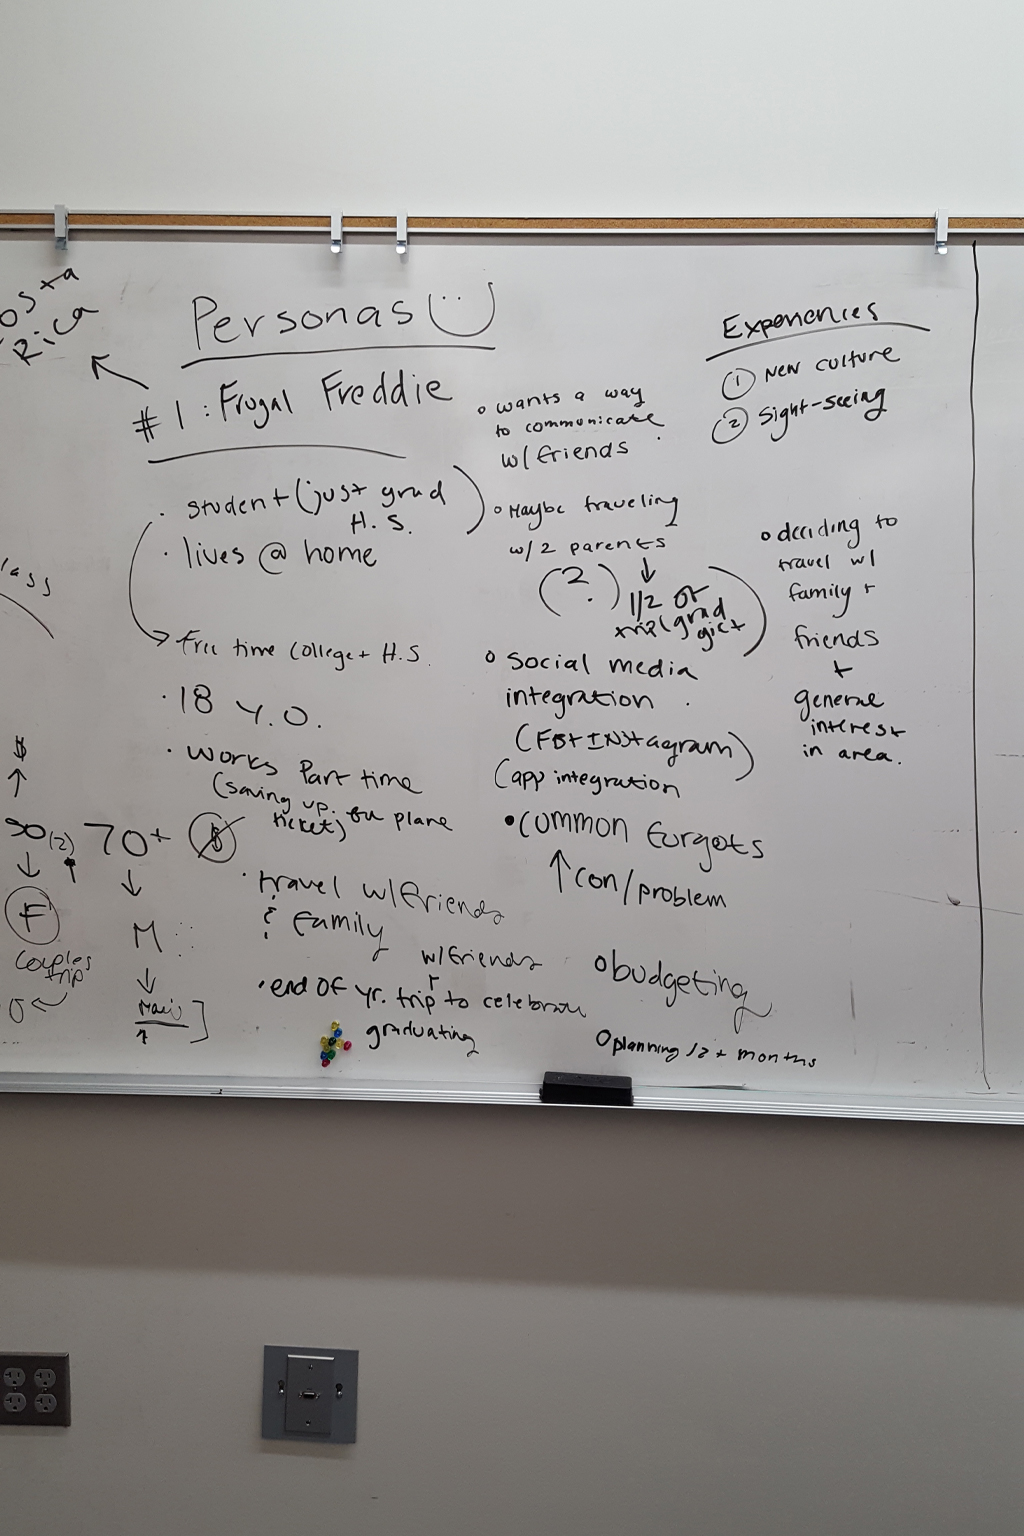 Personas
#1: Frugal Freddie
Rica
. student (just grad
H.S.
. lives @ home
free time college + H.S.
. 18 y.o.
. works Part time
(saving up for plane
ticket)
. travel w/friends
& family
w/friends
. end of yr. trip to celebrate
graduating
o wants a way
to communicate
w/ friends
o Maybe traveling
w/ 2 parents
(?)
1/2 of
trip (grad
gift)
o social media
integration
(FB + INstagram)
(app integration
• common forgots
con/problem
o budgeting
o planning 12 + months
Experiences
1 New culture
2 Sight-seeing
o deciding to
travel w/
family +
friends
+
general
interest
in area.
lass
$
(2) 70+ $
F
M
couples
trip
Maui